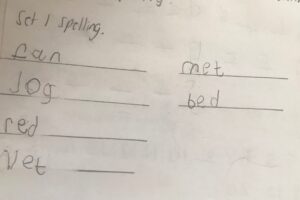 Set 1 spelling.
fan
jog
red
Vet
met
bed